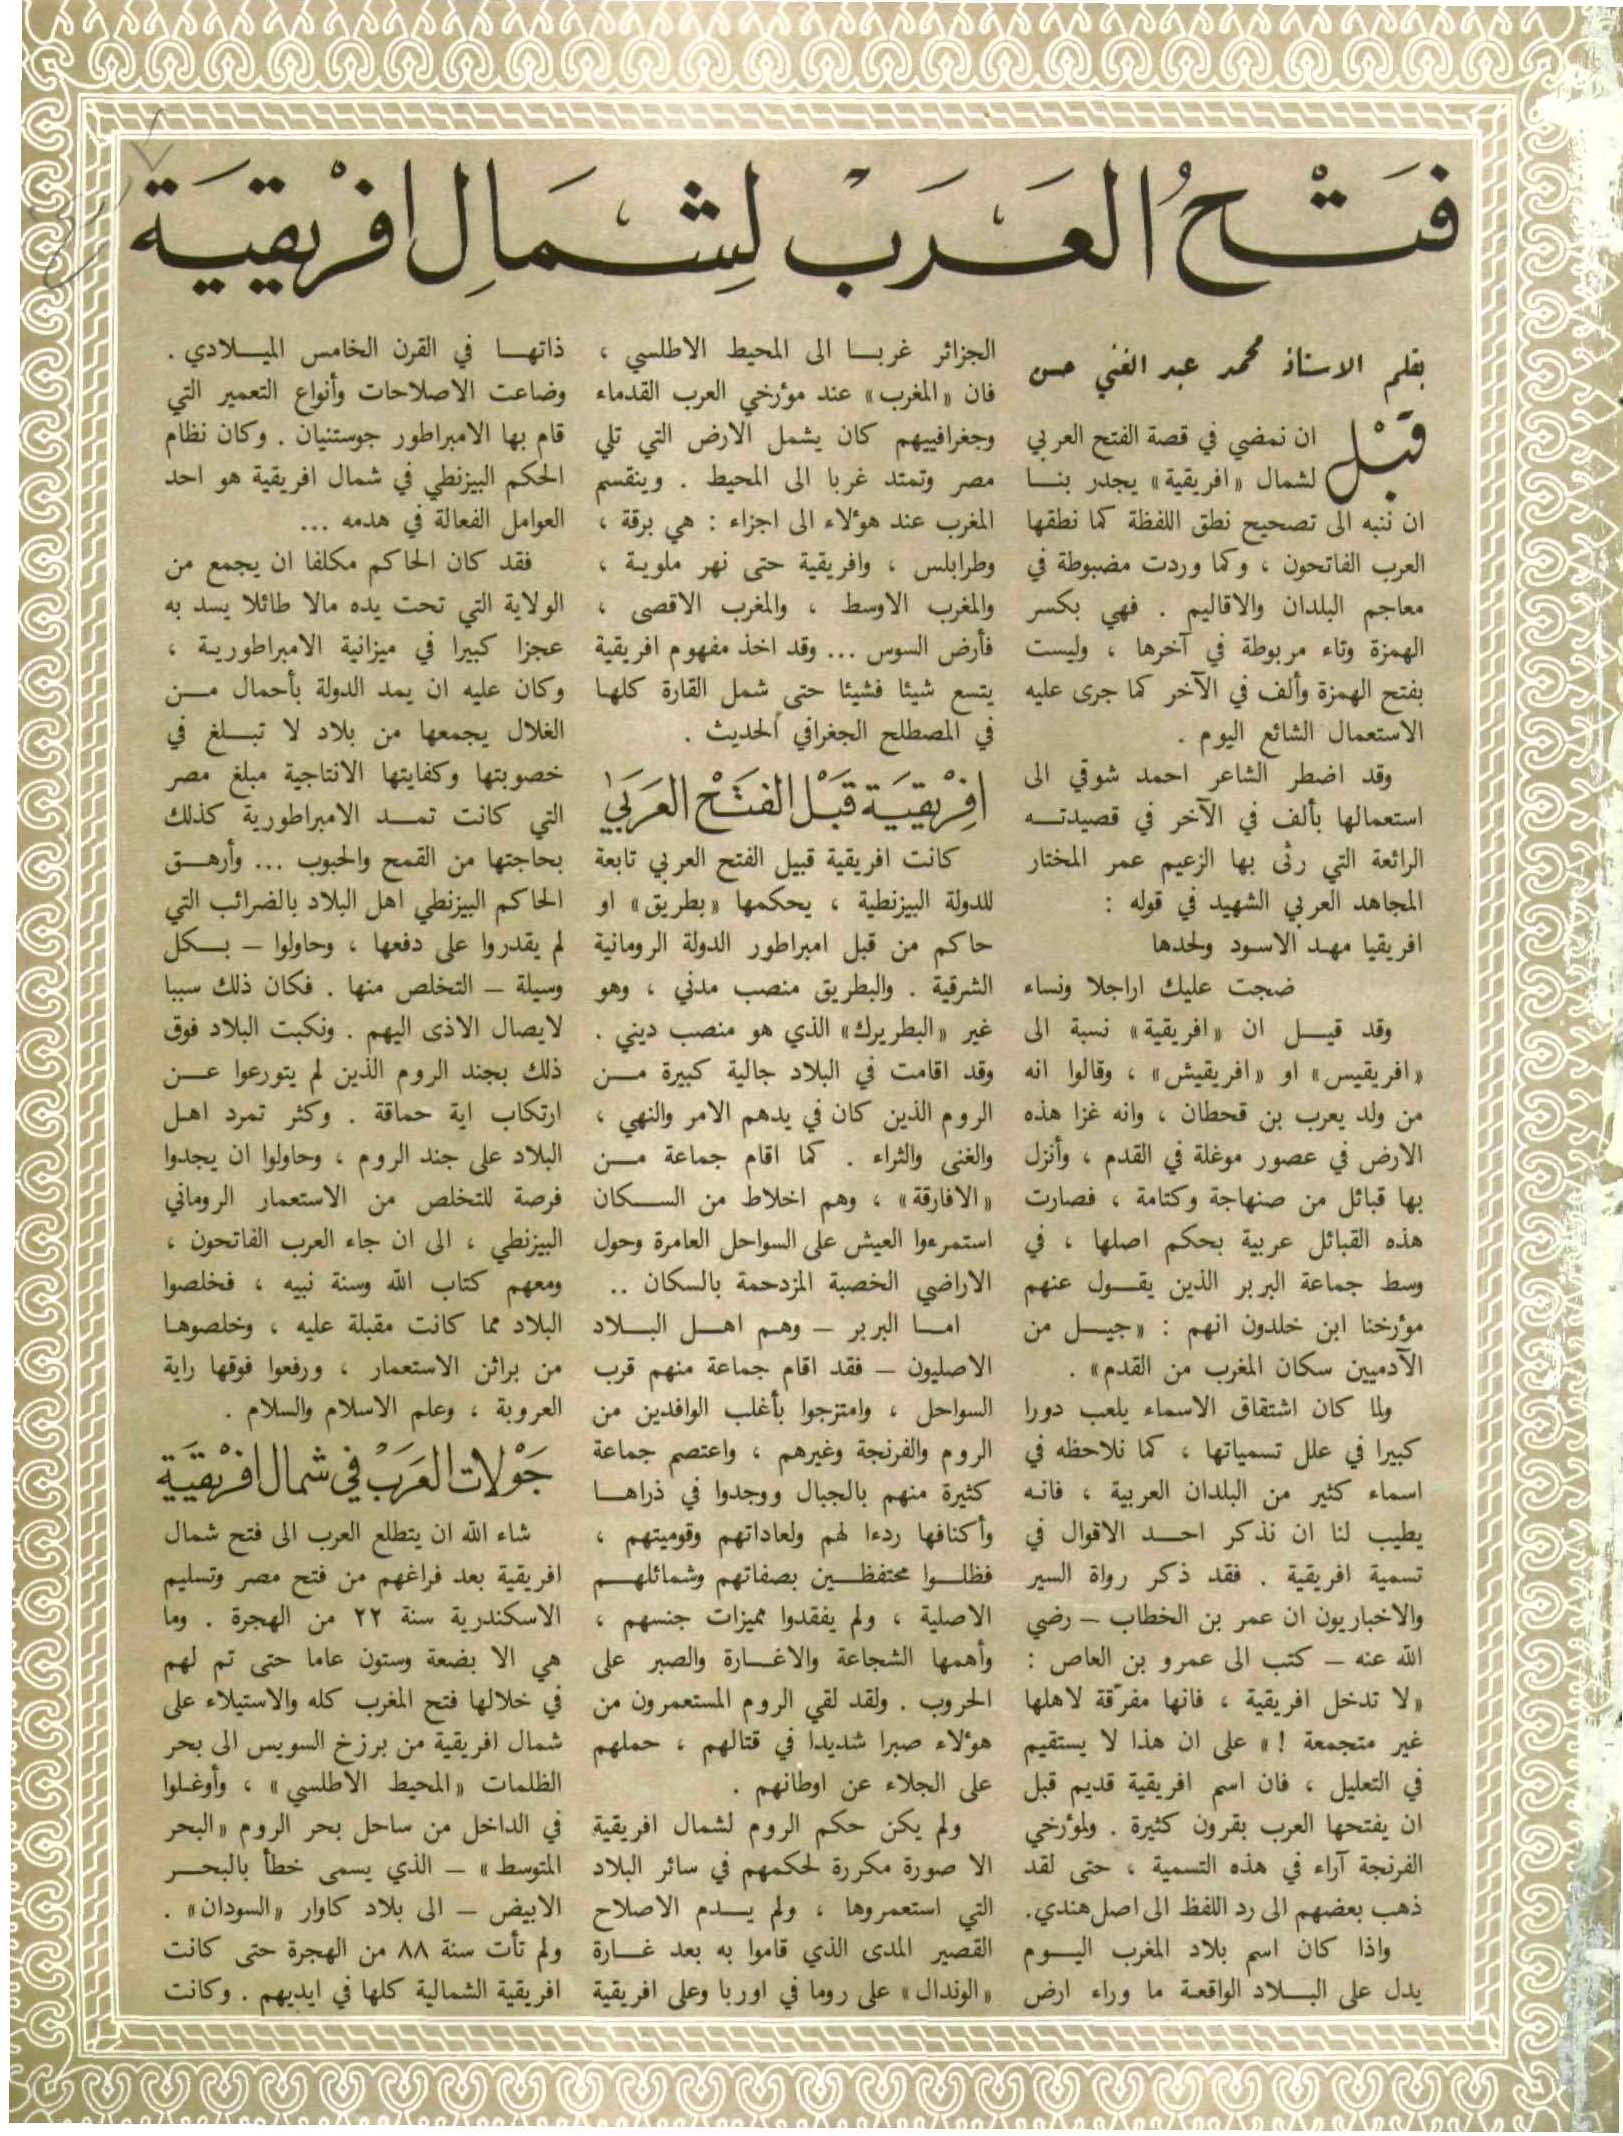 فَتْحُ العَرَبْ لِشَمَالِ افْرِيقيَة
بقلم الاستاذ محمد عبد الغني حسن
قَبْل ان نمضي في قصة الفتح العربي
لشمال «افريقية» يجدر بنا
ان ننبه الى تصحيح نطق اللفظة كما نطقها
العرب الفاتحون ، وكما وردت مضبوطة في
معاجم البلدان والاقاليم . فهي بكسر
الهمزة وتاء مربوطة في آخرها ، وليست
بفتح الهمزة وألف في الآخر كما جرى عليه
الاستعمال الشائع اليوم .
وقد اضطر الشاعر احمد شوقي الى
استعمالها بألف في الآخر في قصيدته
الرائعة التي رثى بها الزعيم عمر المختار
المجاهد العربي الشهيد في قوله :
افريقيا مهد الاسود ولحدها
ضجت عليك اراجلا ونساء
وقد قيل ان «افريقية» نسبة الى
«افريقيس» او «افريقيش» ، وقالوا انه
من ولد يعرب بن قحطان ، وانه غزا هذه
الارض في عصور موغلة في القدم ، وأنزل
بها قبائل من صنهاجة وكتامة ، فصارت
هذه القبائل عربية بحكم اصلها ، في
وسط جماعة البربر الذين يقول عنهم
مؤرخنا ابن خلدون انهم : «جيل من
الآدميين سكان المغرب من القدم» .
ولما كان اشتقاق الاسماء يلعب دورا
كبيرا في علل تسمياتها ، كما نلاحظه في
اسماء كثير من البلدان العربية ، فانه
يطيب لنا ان نذكر احد الاقوال في
تسمية افريقية . فقد ذكر رواة السير
والاخباريون ان عمر بن الخطاب – رضي
الله عنه – كتب الى عمرو بن العاص :
«لا تدخل افريقية ، فانها مفرّقة لاهلها
غير متجمعة !» على ان هذا لا يستقيم
في التعليل ، فان اسم افريقية قديم قبل
ان يفتحها العرب بقرون كثيرة . ولمؤرخي
الفرنجة آراء في هذه التسمية ، حتى لقد
ذهب بعضهم الى رد اللفظ الى اصل هندي.
واذا كان اسم بلاد المغرب اليوم
يدل على البلاد الواقعة ما وراء ارض
الجزائر غربا الى المحيط الاطلسي ،
فان «المغرب» عند مؤرخي العرب القدماء
وجغرافييهم كان يشمل الارض التي تلي
مصر وتمتد غربا الى المحيط . وينقسم
المغرب عند هؤلاء الى اجزاء : هي برقة ،
وطرابلس ، وافريقية حتى نهر ملوية ،
والمغرب الاوسط ، والمغرب الاقصى ،
فأرض السوس ... وقد اخذ مفهوم افريقية
يتسع شيئا فشيئا حتى شمل القارة كلها
في المصطلح الجغرافي الحديث .
افِرْيقيَة قَبْل الفَتْح العَرَبي
كانت افريقية قبيل الفتح العربي تابعة
للدولة البيزنطية ، يحكمها «بطريق» او
حاكم من قبل امبراطور الدولة الرومانية
الشرقية . والبطريق منصب مدني ، وهو
غير «البطريرك» الذي هو منصب ديني .
وقد اقامت في البلاد جالية كبيرة من
الروم الذين كان في يدهم الامر والنهي ،
والغنى والثراء . كما اقام جماعة من
«الافارقة» ، وهم اخلاط من السكان
استمرءوا العيش على السواحل العامرة وحول
الاراضي الخصبة المزدحمة بالسكان ..
اما البربر – وهم اهل البلاد
الاصليون – فقد اقام جماعة منهم قرب
السواحل ، وامتزجوا بأغلب الوافدين من
الروم والفرنجة وغيرهم ، واعتصم جماعة
كثيرة منهم بالجبال ووجدوا في ذراها
وأكنافها ردءا لهم ولعاداتهم وقوميتهم ،
فظلوا محتفظين بصفاتهم وشمائلهم
الاصلية ، ولم يفقدوا مميزات جنسهم ،
وأهمها الشجاعة والاغارة والصبر على
الحروب . ولقد لقي الروم المستعمرون من
هؤلاء صبرا شديدا في قتالهم ، حملهم
على الجلاء عن اوطانهم .
ولم يكن حكم الروم لشمال افريقية
الا صورة مكررة لحكمهم في سائر البلاد
التي استعمروها ، ولم يدم الاصلاح
القصير المدى الذي قاموا به بعد غارة
«الوندال» على روما في اوربا وعلى افريقية
ذاتها في القرن الخامس الميلادي .
وضاعت الاصلاحات وأنواع التعمير التي
قام بها الامبراطور جوستنيان . وكان نظام
الحكم البيزنطي في شمال افريقية هو احد
العوامل الفعالة في هدمه ...
فقد كان الحاكم مكلفا ان يجمع من
الولاية التي تحت يده مالا طائلا يسد به
عجزا كبيرا في ميزانية الامبراطورية ،
وكان عليه ان يمد الدولة بأحمال من
الغلال يجمعها من بلاد لا تبلغ في
خصوبتها وكفايتها الانتاجية مبلغ مصر
التي كانت تمد الامبراطورية كذلك
بحاجتها من القمح والحبوب ... وأرهق
الحاكم البيزنطي اهل البلاد بالضرائب التي
لم يقدروا على دفعها ، وحاولوا – بكل
وسيلة – التخلص منها . فكان ذلك سببا
لايصال الاذى اليهم . ونكبت البلاد فوق
ذلك بجند الروم الذين لم يتورعوا عن
ارتكاب اية حماقة . وكثر تمرد اهل
البلاد على جند الروم ، وحاولوا ان يجدوا
فرصة للتخلص من الاستعمار الروماني
البيزنطي ، الى ان جاء العرب الفاتحون ،
ومعهم كتاب الله وسنة نبيه ، فخلصوا
البلاد مما كانت مقبلة عليه ، وخلصوها
من براثن الاستعمار ، ورفعوا فوقها راية
العروبة ، وعلم الاسلام والسلام .
جَوْلات العَرَبْ في شمال افْرِيقيَة
شاء الله ان يتطلع العرب الى فتح شمال
افريقية بعد فراغهم من فتح مصر وتسليم
الاسكندرية سنة ٢٢ من الهجرة . وما
هي الا بضعة وستون عاما حتى تم لهم
في خلالها فتح المغرب كله والاستيلاء على
شمال افريقية من برزخ السويس الى بحر
الظلمات «المحيط الاطلسي» ، وأوغلوا
في الداخل من ساحل بحر الروم «البحر
المتوسط» – الذي يسمى خطأ بالبحر
الابيض – الى بلاد كاوار «السودان» .
ولم تأت سنة ٨٨ من الهجرة حتى كانت
افريقية الشمالية كلها في ايديهم . وكانت